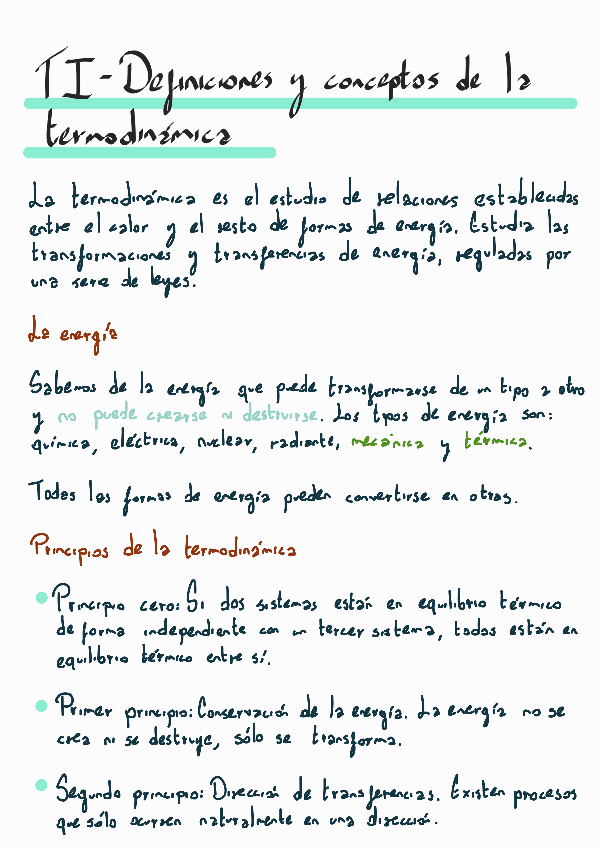 TI-Definiciones y conceptos de la
termodinámica
La termodinámica es el estudio de relaciones establecidas
entre el calor y el resto de formas de energía. Estudia las
transformaciones y transferencias de energía, reguladas por
una serie de leyes.
La energía
Sabemos de la energía que puede transformarse de un tipo a otro
y no puede crearse ni destruirse. Los tipos de energía son:
química, eléctrica, nuclear, radiante, mecánica y térmica.
Todas las formas de energía pueden convertirse en otras.
Principios de la termodinámica
Principio cero: Si dos sistemas están en equilibrio térmico
de forma independiente con un tercer sistema, todos están en
equilibrio térmico entre sí.
Primer principio: Conservación de la energía. La energía no se
crea ni se destruye, sólo se transforma.
Segundo principio: Dirección de transferencias. Existen procesos
que sólo ocurren naturalmente en una dirección.